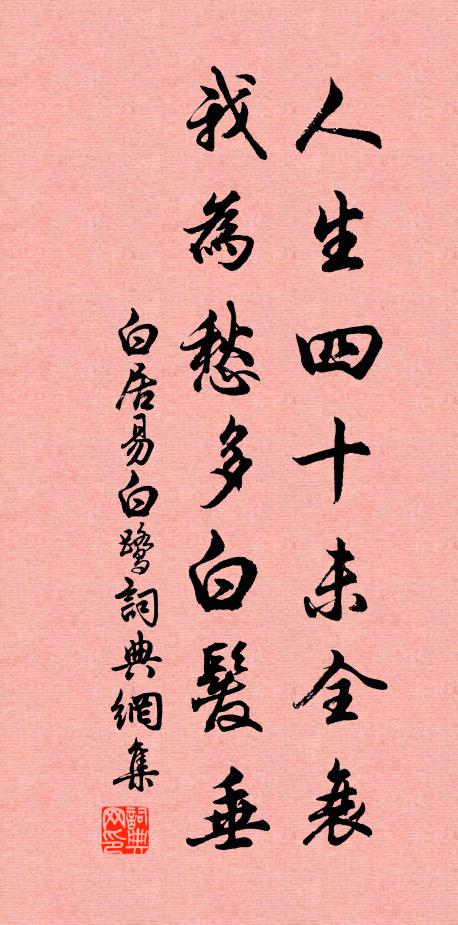 人生四十未全衰
我為愁多白髮垂
白居易白鷺詞典網集
詞典網印